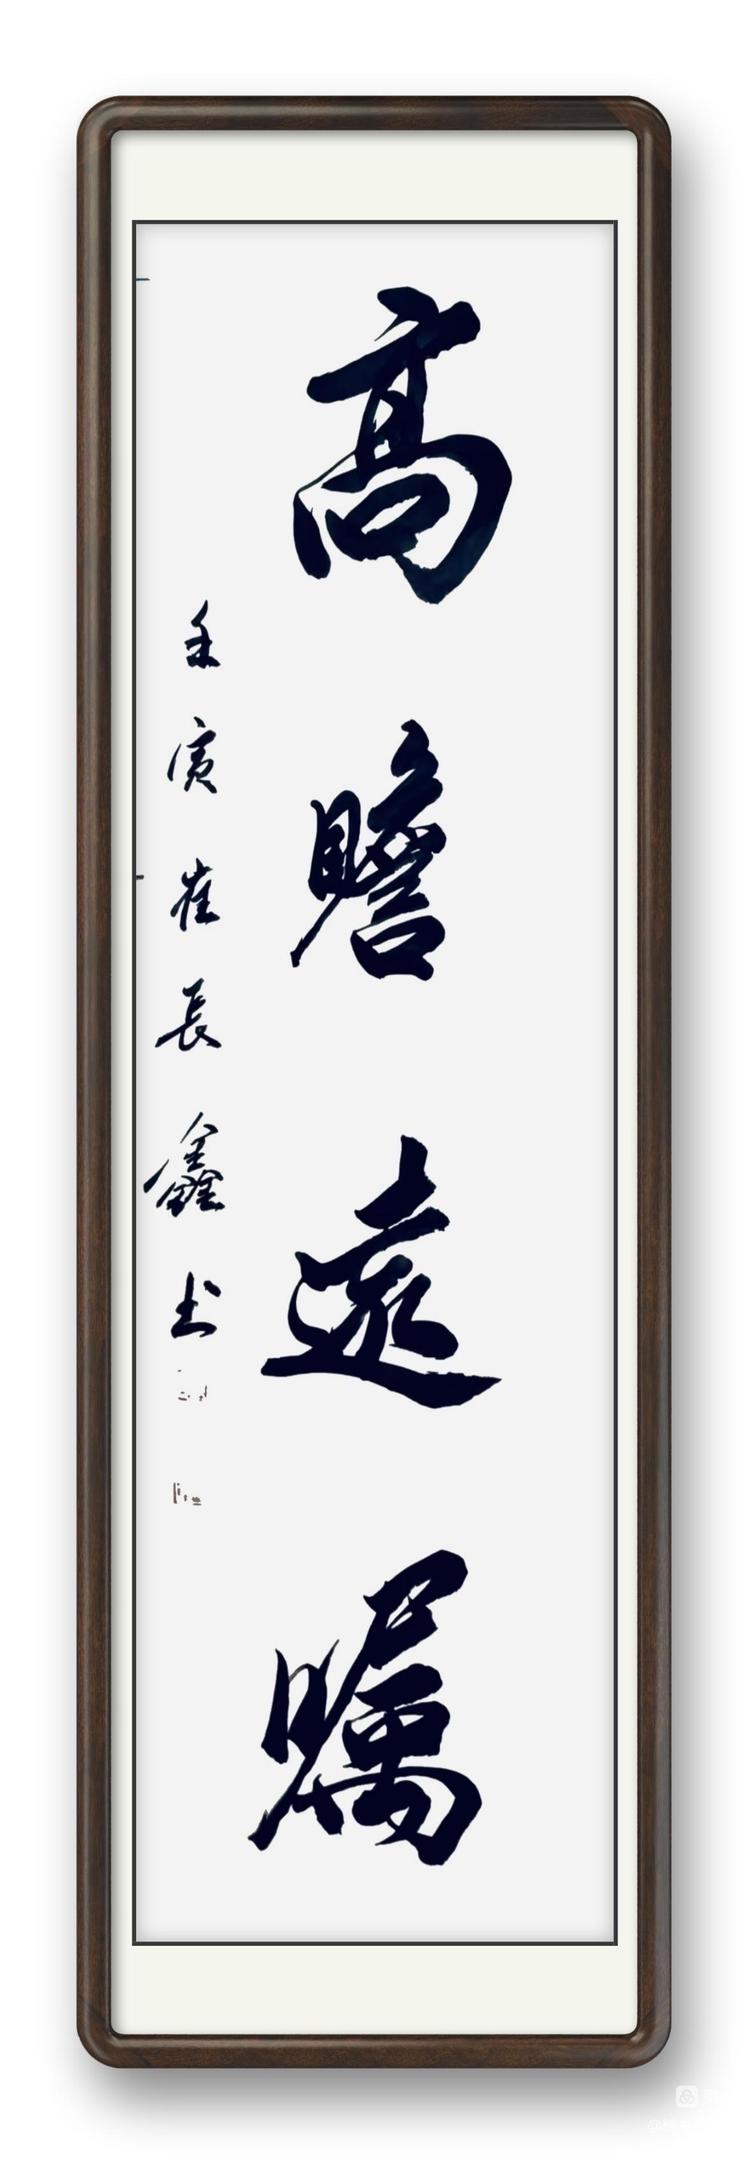 高瞻遠瞩
壬寅崔長鑫书